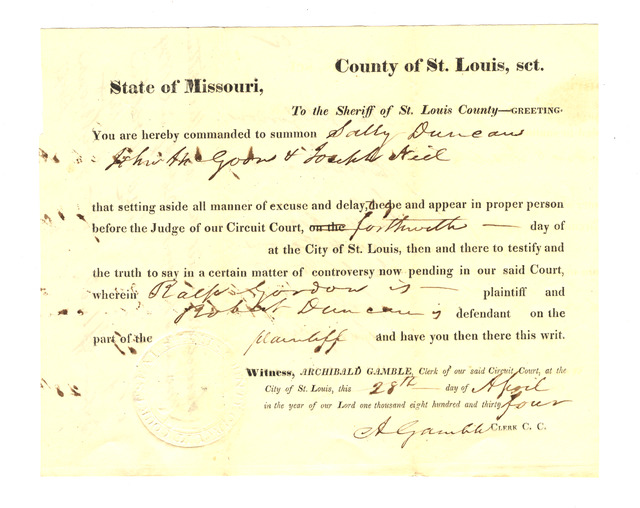 County of St. Louis, sct.
State of Missouri,
To the Sheriff of St. Louis County—GREETING.
You are hereby commanded to summon Sally Duncan
John & Joseph
that setting aside all manner of excuse and delay, they be and appear in proper person
before the Judge of our Circuit Court, on the forthwith — day of
at the City of St. Louis, then and there to testify and
the truth to say in a certain matter of controversy now pending in our said Court,
wherein Ralph Gordon is — plaintiff and
Robert Duncan is defendant on the
part of the plaintiff and have you then there this writ.
Witness, ARCHIBALD GAMBLE, Clerk of our said Circuit Court, at the
City of St. Louis, this 28th — day of April
in the year of our Lord one thousand eight hundred and thirty four
A Gamble CLERK C. C.